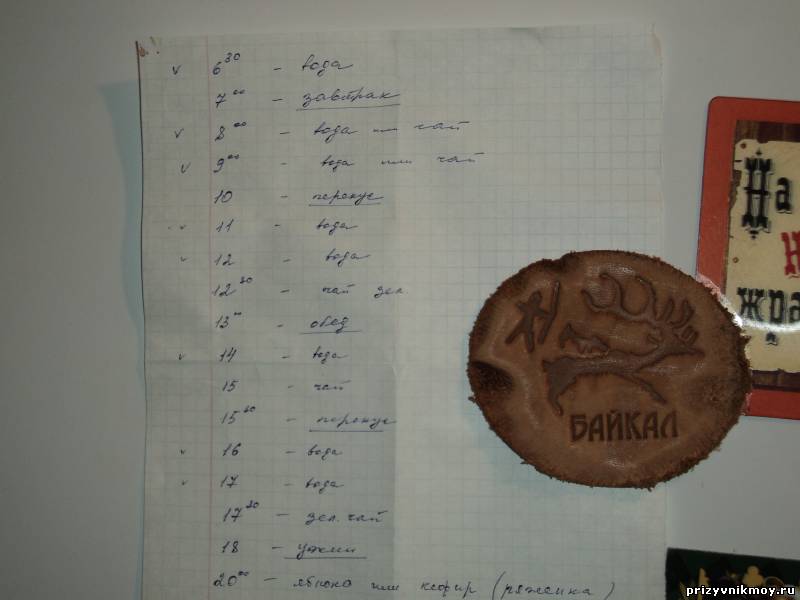 v 6³⁰ - вода
7⁰⁰ - завтрак
v 8⁰⁰ - вода или чай
v 9⁰⁰ - вода или чай
10 - перекус
v 11 - вода
v 12 - вода
12³⁰ - чай зел.
13⁰⁰ - обед
v 14 - вода
15 - чай
15³⁰ - перекус
v 16 - вода
v 17 - вода
17³⁰ - зел. чай
18 - ужин
20⁰⁰ - яблоко или кефир (ряженка)
БАЙКАЛ
На
н
жра
prizyvnikmoy.ru